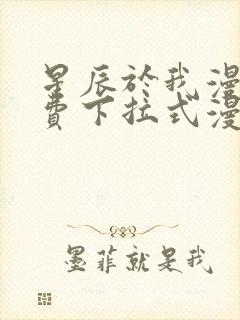 星辰於我漫
費下拉式漫
墨菲就是我